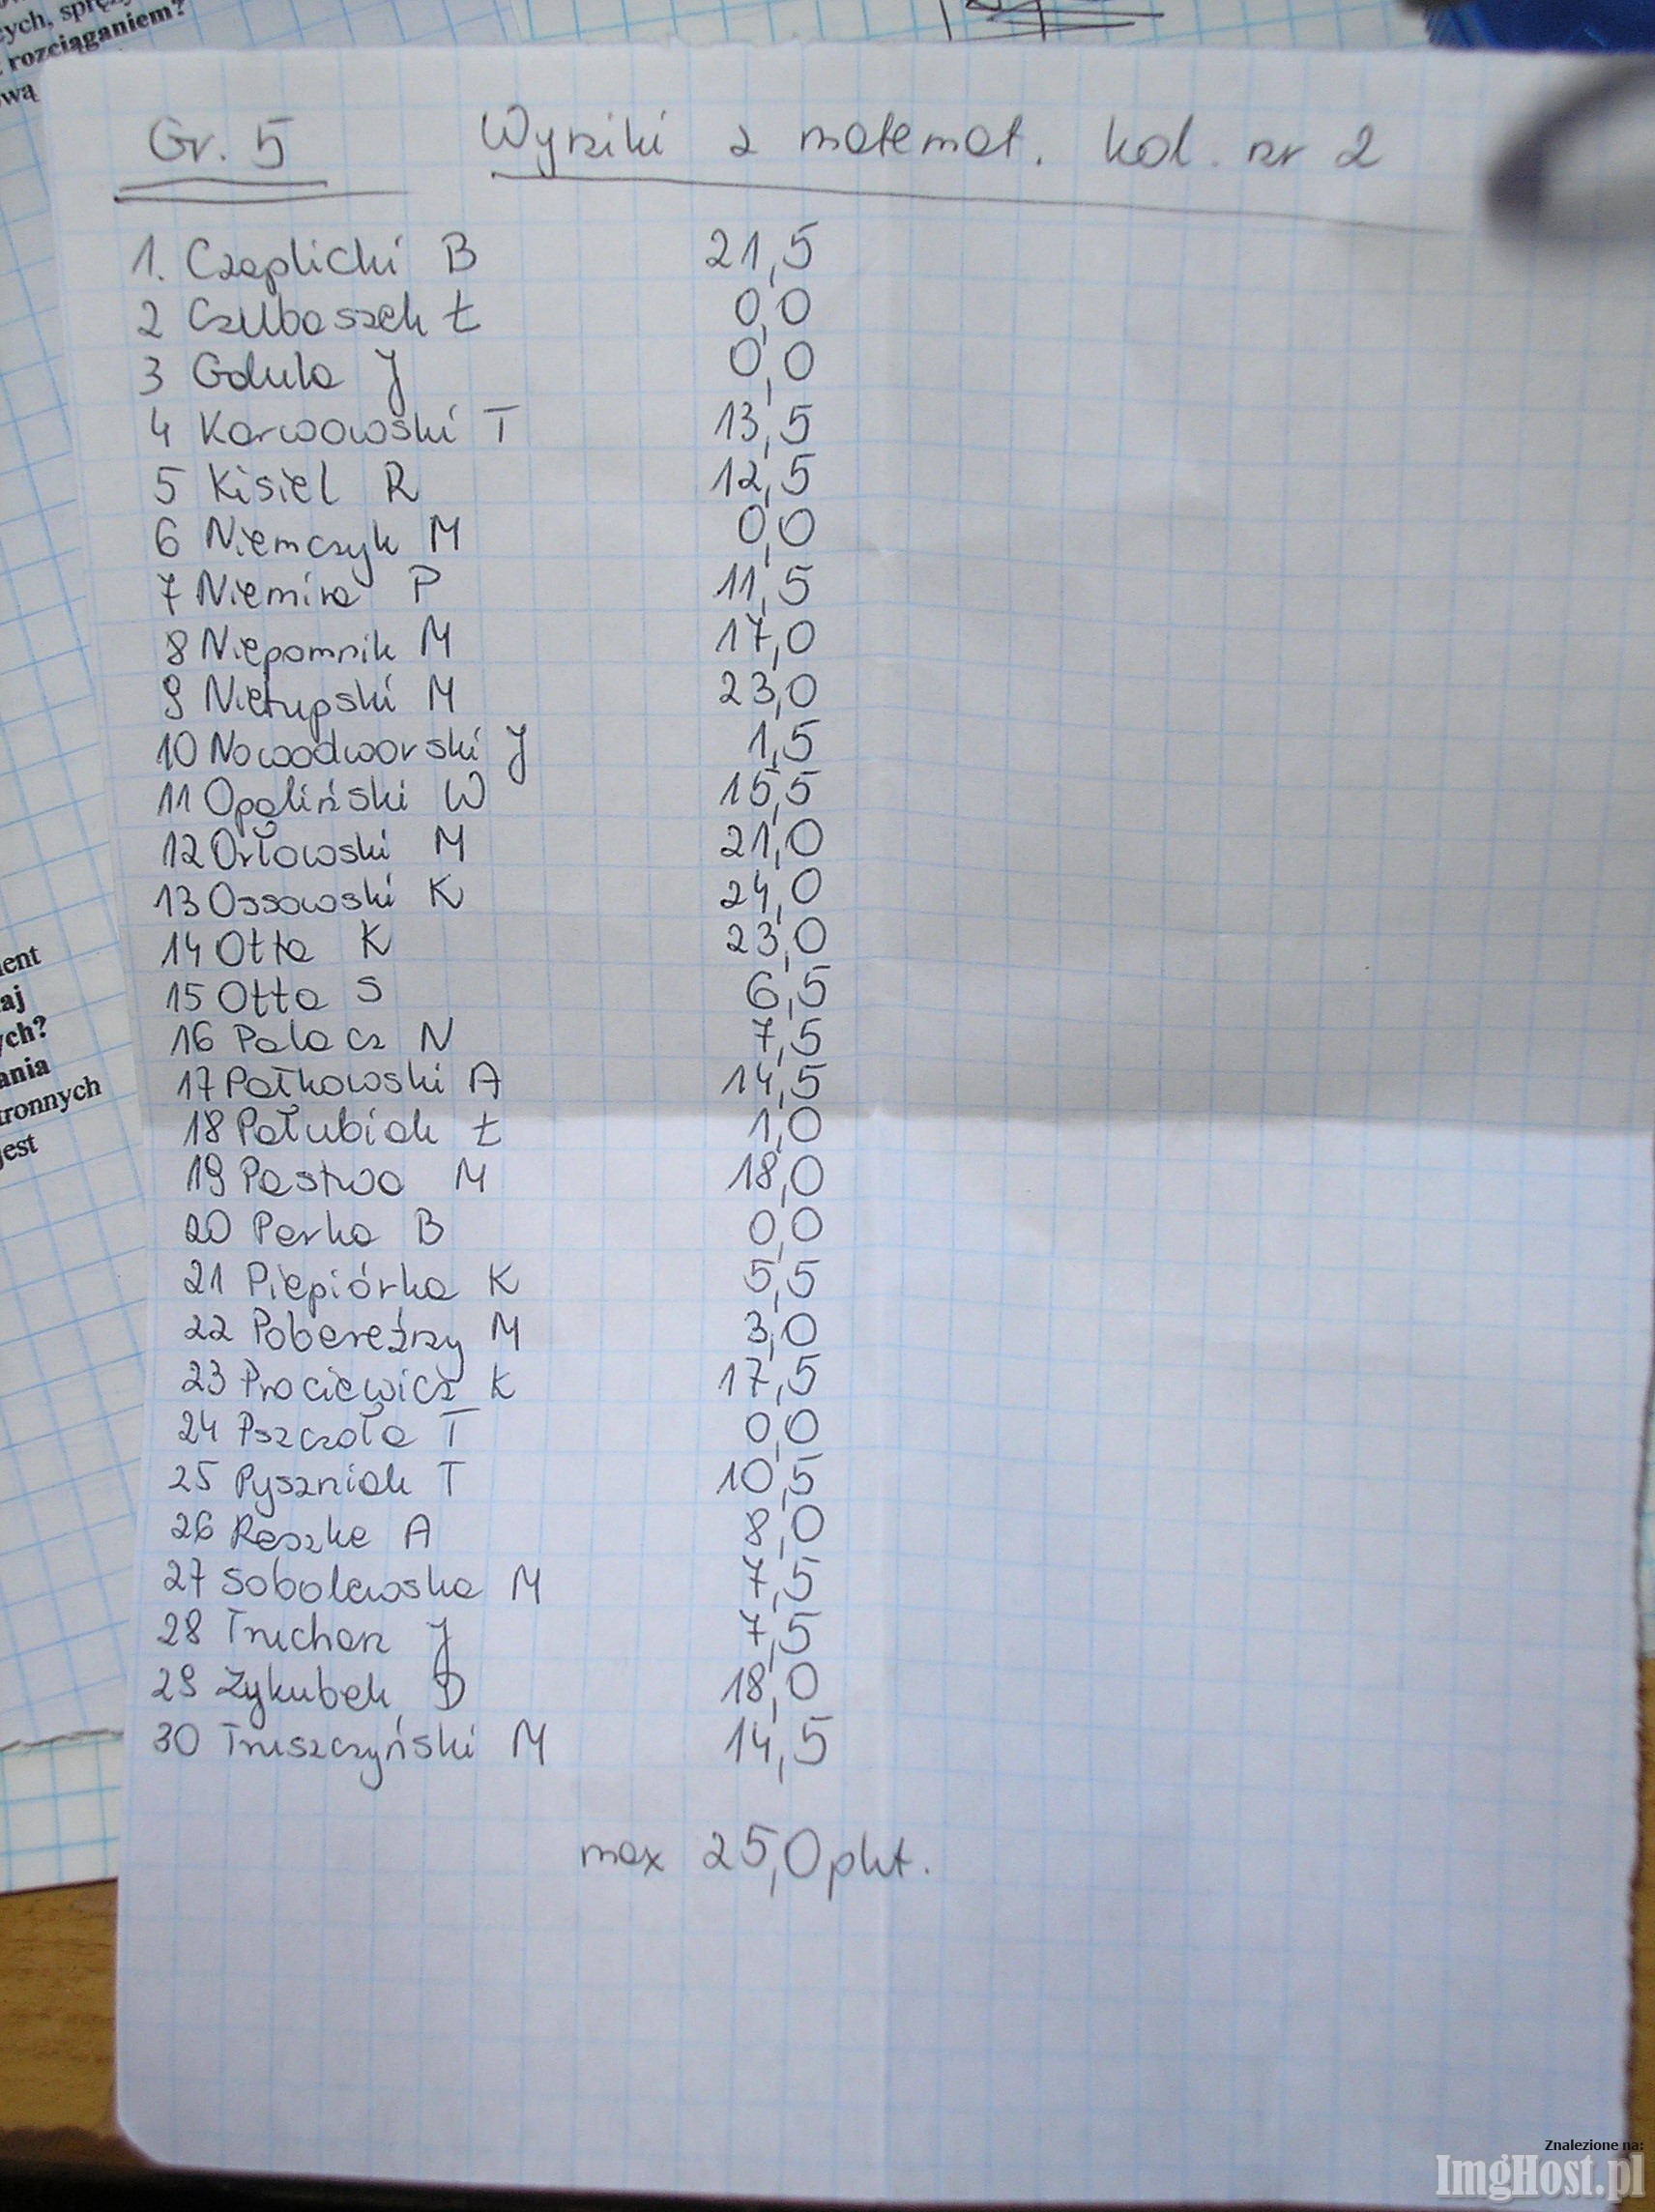 ych, spręży
rozciąganiem?
wą
Gr. 5 Wyniki z matemat. kol. nr 2
1. Czaplicki B 21,5
2 Czubaszek Ł 0,0
3 Gdula J 0,0
4 Karwowski T 13,5
5 Kisiel R 12,5
6 Niemczyk M 0,0
7 Niemira P 11,5
8 Niepomnik M 17,0
9 Nietupski M 23,0
10 Nowodworski J 1,5
11 Opaliński W 15,5
12 Orłowski M 21,0
13 Ossowski K 24,0
14 Otta K 23,0
15 Otta S 6,5
16 Palacz N 7,5
17 Pałkowski A 14,5
18 Pałubiak Ł 1,0
19 Pastwa M 18,0
20 Perka B 0,0
21 Piepiórka K 5,5
22 Pobereźny M 3,0
23 Prociewicz K 17,5
24 Pszczoła T 0,0
25 Pyszniak T 10,5
26 Reszke A 8,0
27 Sobolewska M 7,5
28 Truchan J 7,5
29 Zykubek D 18,0
30 Truszczyński M 14,5
max 25,0 pkt.
ent
aj
ych?
ania
tronnych
jest
Znalezione na:
ImgHost.pl